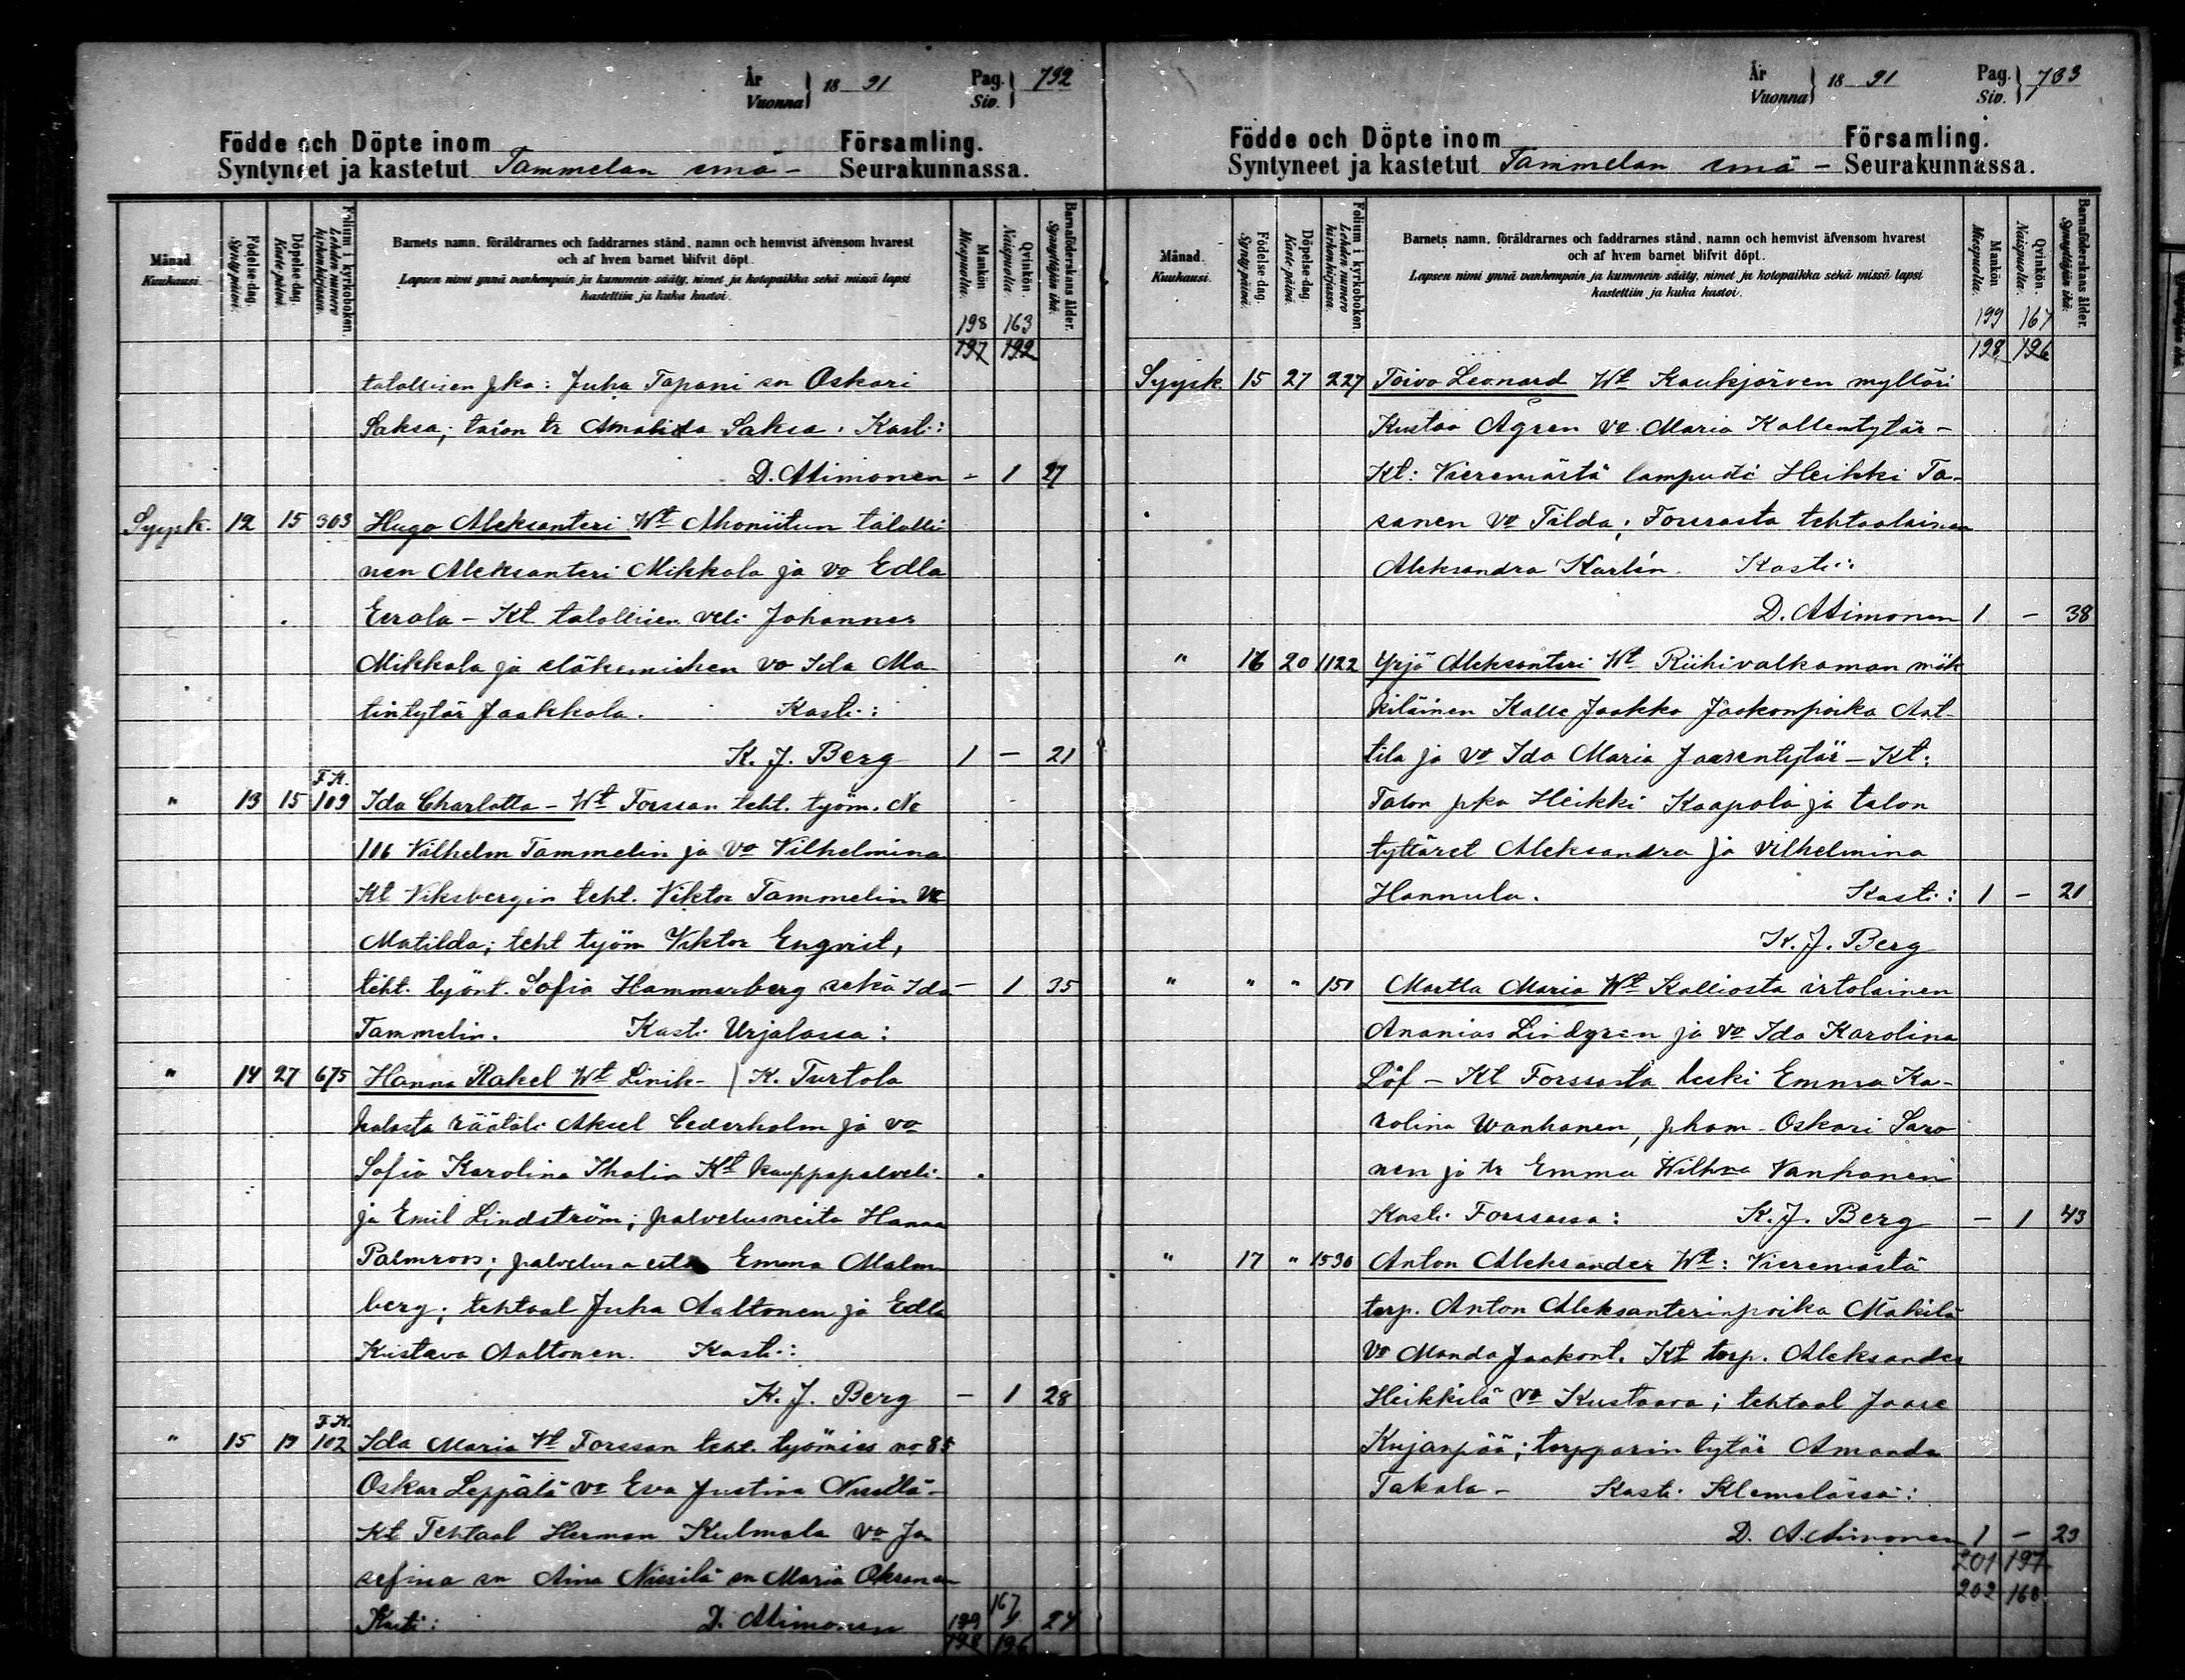 År Vuonna } 18 91 Pag. Siv. } 732
Födde och Döpte inom Församling.
Syntyneet ja kastetut Tammelan emä- Seurakunnassa.
Månad. Kuukausi.
Födelse-dag. Syntypäivä.
Döpelse-dag. Kaste-päivä.
Folium i kyrkoboken. Lehden numero kirkonkirjassa.
Barnets namn, föräldrarnes och faddrarnes stånd, namn och hemvist äfvensom hvarest
och af hvem barnet blifvit döpt.
Lapsen nimi ynnä vanhempain ja kummein sääty, nimet ja kotopaikka sekä missä lapsi
kastettiin ja kuka kastoi.
Mankön. Miespuolia.
Qvinkön. Naispuolia.
Barnaföderskans ålder. Synnyttäjän ikä.
198 163
197 192
talollisen pka: Juha Tapani sn Oskari
Saksa; talon tr Amalida Saksa. Kasti:
D. Aimonen - 1 27
Syysk. 12 15 303 Hugo Aleksanteri Wt Ahoniitun talolli
nen Aleksanteri Mikkola ja vo Edla
Eerola - Kt talollisen veli Johannes
Mikkola ja eläkemiehen vo Ida Ma
tintytär Jaakkola. Kasti:
K. J. Berg 1 - 21
" 13 15 F.K. 109 Ida Charlotta - Wt Forssan teht. työm. No
106 Vilhelm Tammelin ja Vo Vilhelmina
Kt Viksbergin teht. Viktor Tammelin Vo
Matilda; teht työm Viktor Enqvist,
teht. työnt. Sofia Hammarberg sekä Ida - 1 35
Tammelin. Kasti Urjalassa:
" 14 27 675 Hanna Rakel Wt Linik- / K. Turtola
kalasta räätäli Aksel Cederholm ja vo
Sofia Karolina Thalin Kt kauppapalveli-
ja Emil Lindström; palvelusneito Hanna
Palmroos; Emma Malm
berg; tehtaal Juha Aaltonen ja Edla
Kustava Aaltonen. Kasti:
K. J. Berg - 1 28
" 15 19 F.K. 102 Ida Maria Vt Forssan teht. työmies no 85
Oskar Leppälä vo Eva Justina
Kt Tehtaal Herman Kulmala vo Jo
sefina sn Aina Niesilä sn Maria Oksanen
Kasti: D. Aimonen 199 167 1 24
198 196
År Vuonna } 18 91 Pag. Siv. } 733
Födde och Döpte inom Församling.
Syntyneet ja kastetut Tammelan emä- Seurakunnassa.
Månad. Kuukausi.
Födelse-dag. Syntypäivä.
Döpelse-dag. Kaste-päivä.
Folium i kyrkoboken. Lehden numero kirkonkirjassa.
Barnets namn, föräldrarnes och faddrarnes stånd, namn och hemvist äfvensom hvarest
och af hvem barnet blifvit döpt.
Lapsen nimi ynnä vanhempain ja kummein sääty, nimet ja kotopaikka sekä missä lapsi
kastettiin ja kuka kastoi.
Mankön. Miespuolia.
Qvinkön. Naispuolia.
Barnaföderskans ålder. Synnyttäjän ikä.
199 167
198 196
Syysk 15 27 227 Toivo Leonard Wt Kaukjärven mylläri
Kustaa Ågren vo Maria Kallentytär -
Kt: Vieremästä lampuoti Heikki Ta-
sanen vo Tilda; Forssasta tehtaalainen
Aleksandra Karlén. Kasti:
D. Aimonen 1 - 38
" 16 20 1122 Yrjö Aleksanteri Wt Riihivalkaman mök
kiläinen Kalle Jaakko Jaakonpoika Ant-
tila ja vo Ida Maria Jaasentytär - Kt:
Talon pka Heikki Kaapola ja talon
tyttäret Aleksandra ja Vilhelmina
Hannula. Kasti: 1 - 21
K. J. Berg
" " " 151 Martta Maria Wt Kalliosta irtolainen
Ananias Lindgren ja vo Ida Karolina
Löf - Kt Forssasta leski Emma Ka-
rolina Wanhanen, pkam. Oskari Saro
nen ja tr Emma Wilhna Vanhanen
Kasti Forssassa: K. J. Berg - 1 43
" 17 " 1536 Anton Aleksander Wt: Vieremästä
torp. Anton Aleksanterinpoika Mäkilä
vo Manda Jaakont. Kt torp. Aleksander
Heikkilä vo Kustaava; tehtaal Jaase
Kujanpää; torpparin tytär Amanda
Takala - Kasti Klemelässä:
D. Aimonen 1 - 23
201 197
202 168